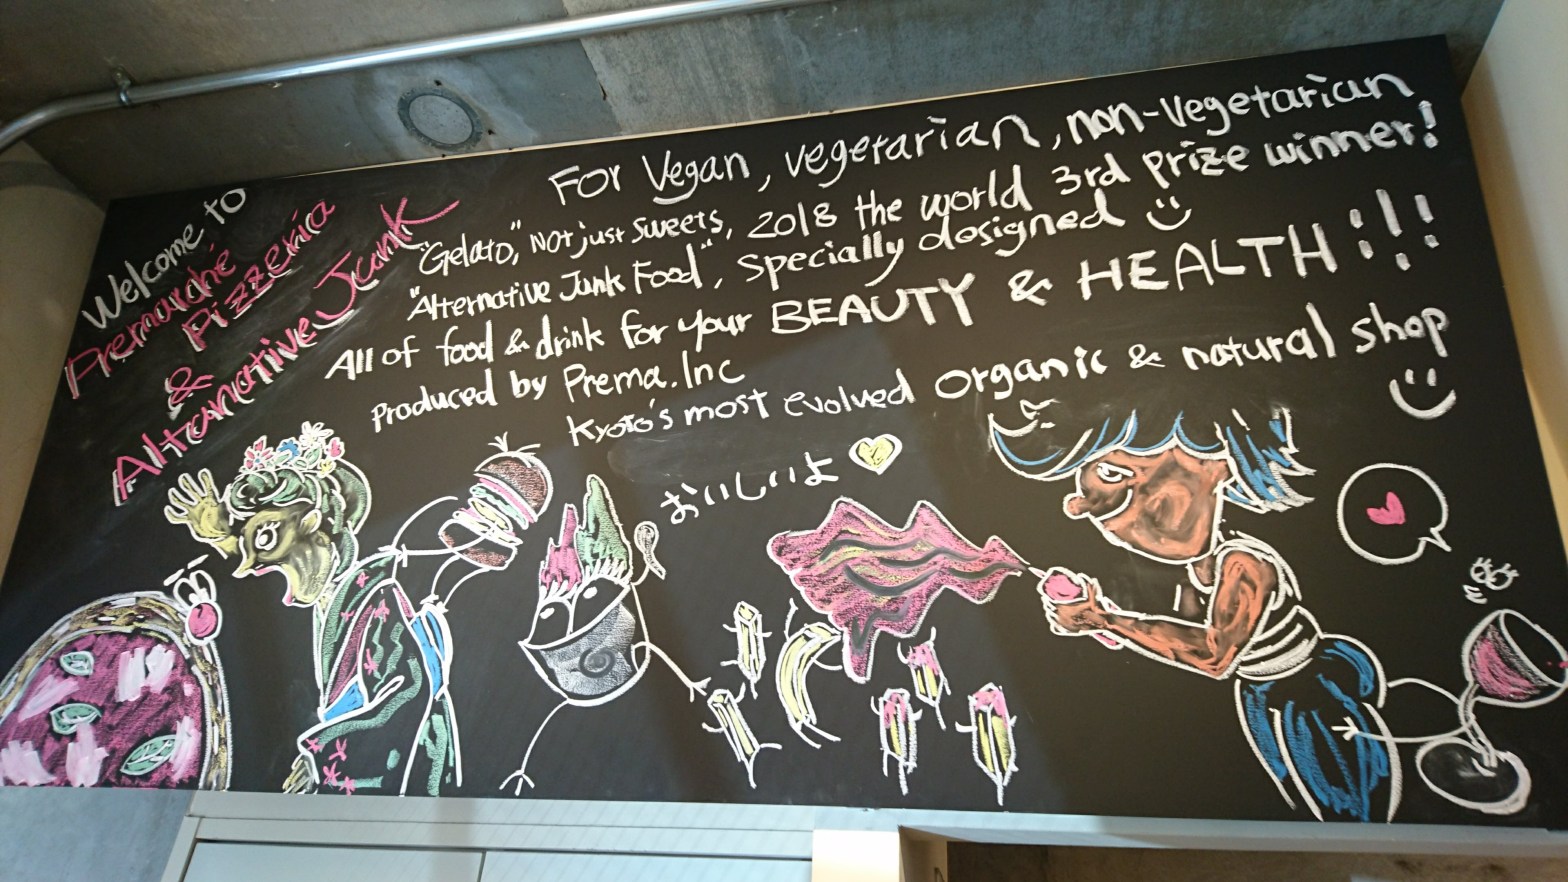 Welcome to
Premarché
Pizzeria
&
Alternative Junk
For Vegan, vegetarian, non-vegetarian
"Gelato," Not just sweets, 2018 the world 3rd prize winner!
"Alternative Junk Food", specially designed
All of food & drink for your BEAUTY & HEALTH!!!
produced by Prema.Inc
Kyoto's most evolved organic & natural shop
おいしいよ